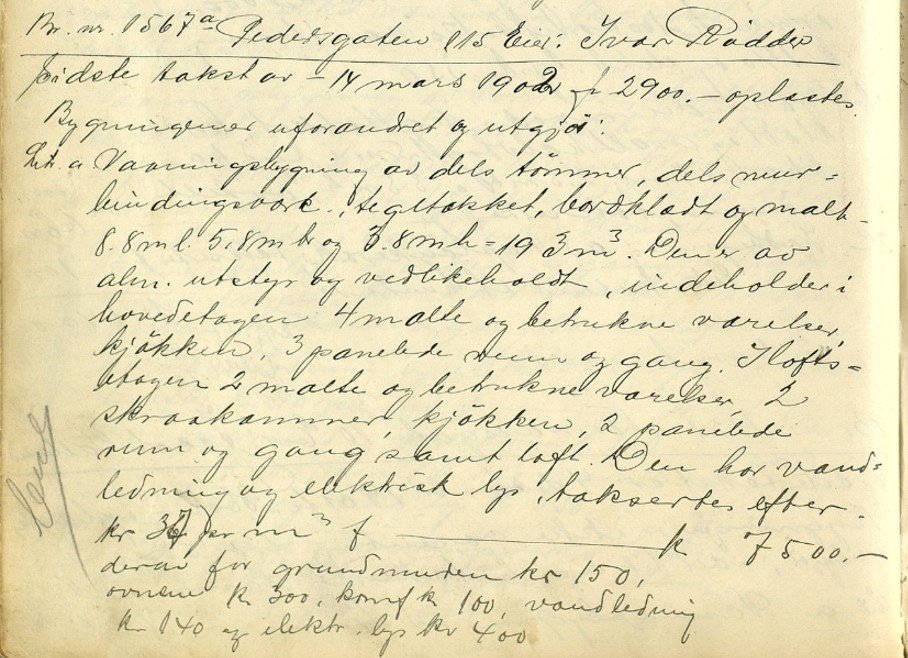 Br. nr. 1567a Pedersgaten 115 Eier: Ivar Rödder
sidste takst av 14 mars 1902 f 2900.- oplæstes
Bygningen er uforandret og utgjör:
Litr. a Vaaningsbygning av dels tömmer, dels mur-
bindingsverk, tegltækket, bordklædt og malt
8.8 m l. 5,8 m br og 3.8 m h = 193 m³. Den er av
alm. utstyr og vedlikeholdt, indeholder i
hovedetagen 4 malte og betrukne værelser,
kjökken, 3 panelede rum og gang. I lofts=
etagen 2 malte og betrukne værelser, 2
skraakammer, kjökken, 2 panelede
rum og gang samt loft. Den har vand=
ledning og elektrisk lys, takseres efter
kr 37 pr m³ f k 7500.-
derav for grundmuren kr 150,
ovnene k 300, komf k 100, vandledning
kr 140 og elektr. lys kr 400